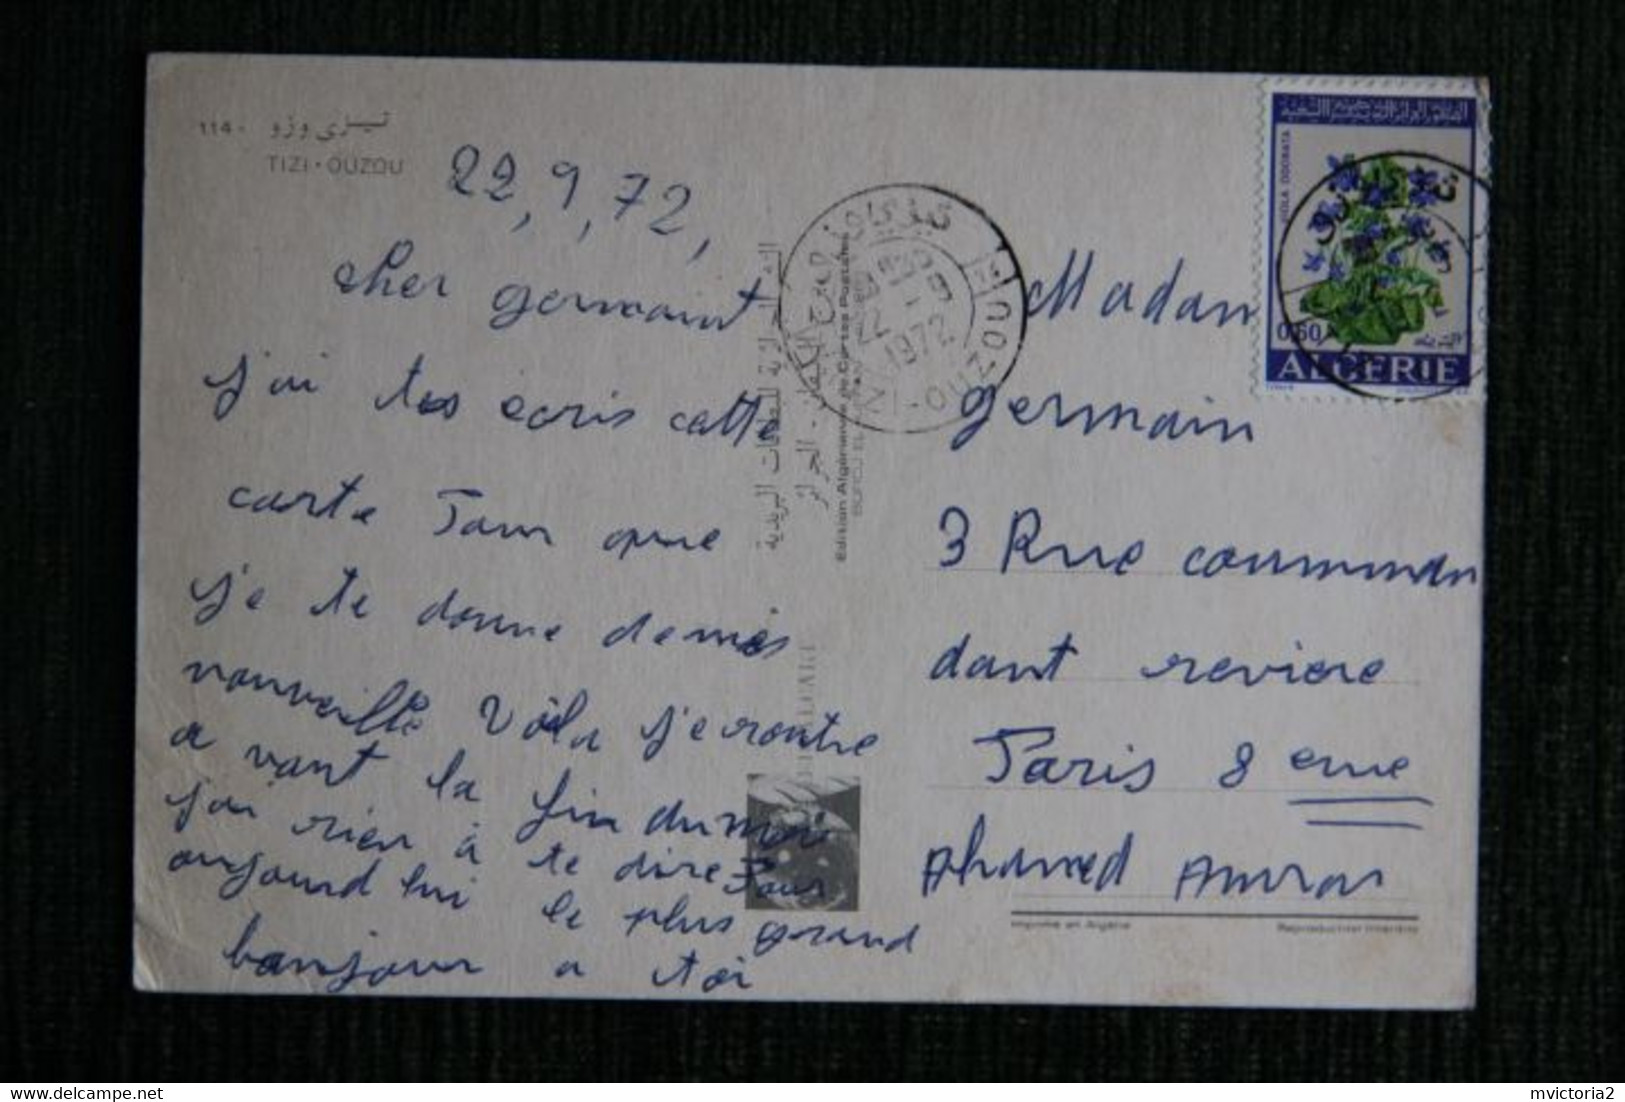 114 - تيزي وزو
TIZI-OUZOU
22,9,72,
cher germaint
j'ai tes ecris cette
carte Tam que
je te donne de mes
nouveille Voila je rontre
a vant la fin du moi
j'ai rien à te dire Pour
aujourd hui le plus grand
bonjour a toi
Edition Algérienne de Cartes Postales
TIZI-OUZOU
22 - 9
1972
VIOLA ODORATA
0,60
ALGERIE
Madam
germain
3 Rue commman
dant reviere
Paris 8 eme
Ahamed Amrar
Imprimé en Algérie
Reproduction interdite
mvictoria2